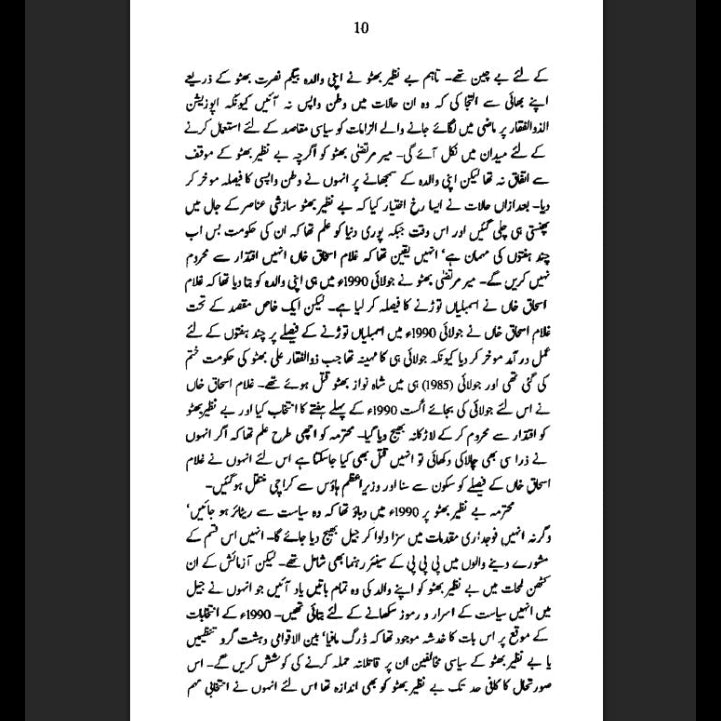 10
کے لئے بے چین تھے۔ تاہم بے نظیر بھٹو نے اپنی والدہ بیگم نصرت بھٹو کے ذریعے
اپنے بھائی سے التجا کی کہ وہ ان حالات میں وطن واپس نہ آئیں کیونکہ اپوزیشن
الذوالفقار پر ماضی میں لگائے جانے والے الزامات کو سیاسی مقاصد کے لئے استعمال کرنے
کے لئے میدان میں نکل آئے گی۔ میر مرتضٰی بھٹو کو اگرچہ بے نظیر بھٹو کے موقف
سے اتفاق نہ تھا لیکن اپنی والدہ کے سمجھانے پر انہوں نے وطن واپسی کا فیصلہ موخر کر
دیا۔ بعدازاں حالات نے ایسا رخ اختیار کیا کہ بے نظیر بھٹو سازشی عناصر کے جال میں
پھنستی ہی چلی گئیں اور اس وقت جبکہ پوری دنیا کو علم تھا کہ ان کی حکومت بس اب
چند ہفتوں کی مہمان ہے‘ انہیں یقین تھا کہ غلام اسحاق خاں انہیں اقتدار سے محروم
نہیں کریں گے۔ میر مرتضٰی بھٹو نے جولائی 1990ء میں ہی اپنی والدہ کو بتا دیا تھا کہ غلام
اسحاق خاں نے اسمبلیاں توڑنے کا فیصلہ کر لیا ہے۔ لیکن ایک خاص مقصد کے تحت
غلام اسحاق خاں نے جولائی 1990ء میں اسمبلیاں توڑنے کے فیصلے پر چند ہفتوں کے لئے
عمل در آمد موخر کر دیا کیونکہ جولائی ہی کا مہینہ تھا جب ذوالفقار علی بھٹو کی حکومت ختم
کی گئی تھی اور جولائی (1985) ہی میں شاہ نواز بھٹو قتل ہوئے تھے۔ غلام اسحاق خاں
نے اس لئے جولائی کی بجائے اگست 1990ء کے پہلے ہفتے کا انتخاب کیا اور بے نظیر بھٹو
کو اقتدار سے محروم کر کے لاڑکانہ بھیج دیا گیا۔ محترمہ کو اچھی طرح علم تھا کہ اگر انہوں
نے ذرا سی بھی چالاکی دکھائی تو انہیں قتل بھی کیا جاسکتا ہے اس لئے انہوں نے غلام
اسحاق خاں کے فیصلے کو سکون سے سنا اور وزیراعظم ہاؤس سے کراچی منتقل ہوگئیں۔
محترمہ بے نظیر بھٹو پر 1990ء میں دباؤ تھا کہ وہ سیاست سے ریٹائر ہو جائیں‘
وگرنہ انہیں فوجداری مقدمات میں سزا دلوا کر جیل بھیج دیا جائے گا۔ انہیں اس قسم کے
مشورے دینے والوں میں پی پی پی کے سینئر رہنما بھی شامل تھے۔ لیکن آزمائش کے ان
کٹھن لمحات میں بے نظیر بھٹو کو اپنے والد کی وہ تمام باتیں یاد آئیں جو انہوں نے جیل
میں انہیں سیاست کے اسرار و رموز سکھانے کے لئے بتائی تھیں۔ 1990ء کے انتخابات
کے موقع پر اس بات کا خدشہ موجود تھا کہ ڈرگ مافیا‘ بین الاقوامی دہشت گرو تنظیمیں
یا بے نظیر بھٹو کے سیاسی مخالفین ان پر قاتلانہ حملہ کرنے کی کوشش کریں گے۔ اس
صورتحال کا کافی حد تک بے نظیر بھٹو کو بھی اندازہ تھا اس لئے انہوں نے انتخابی مہم